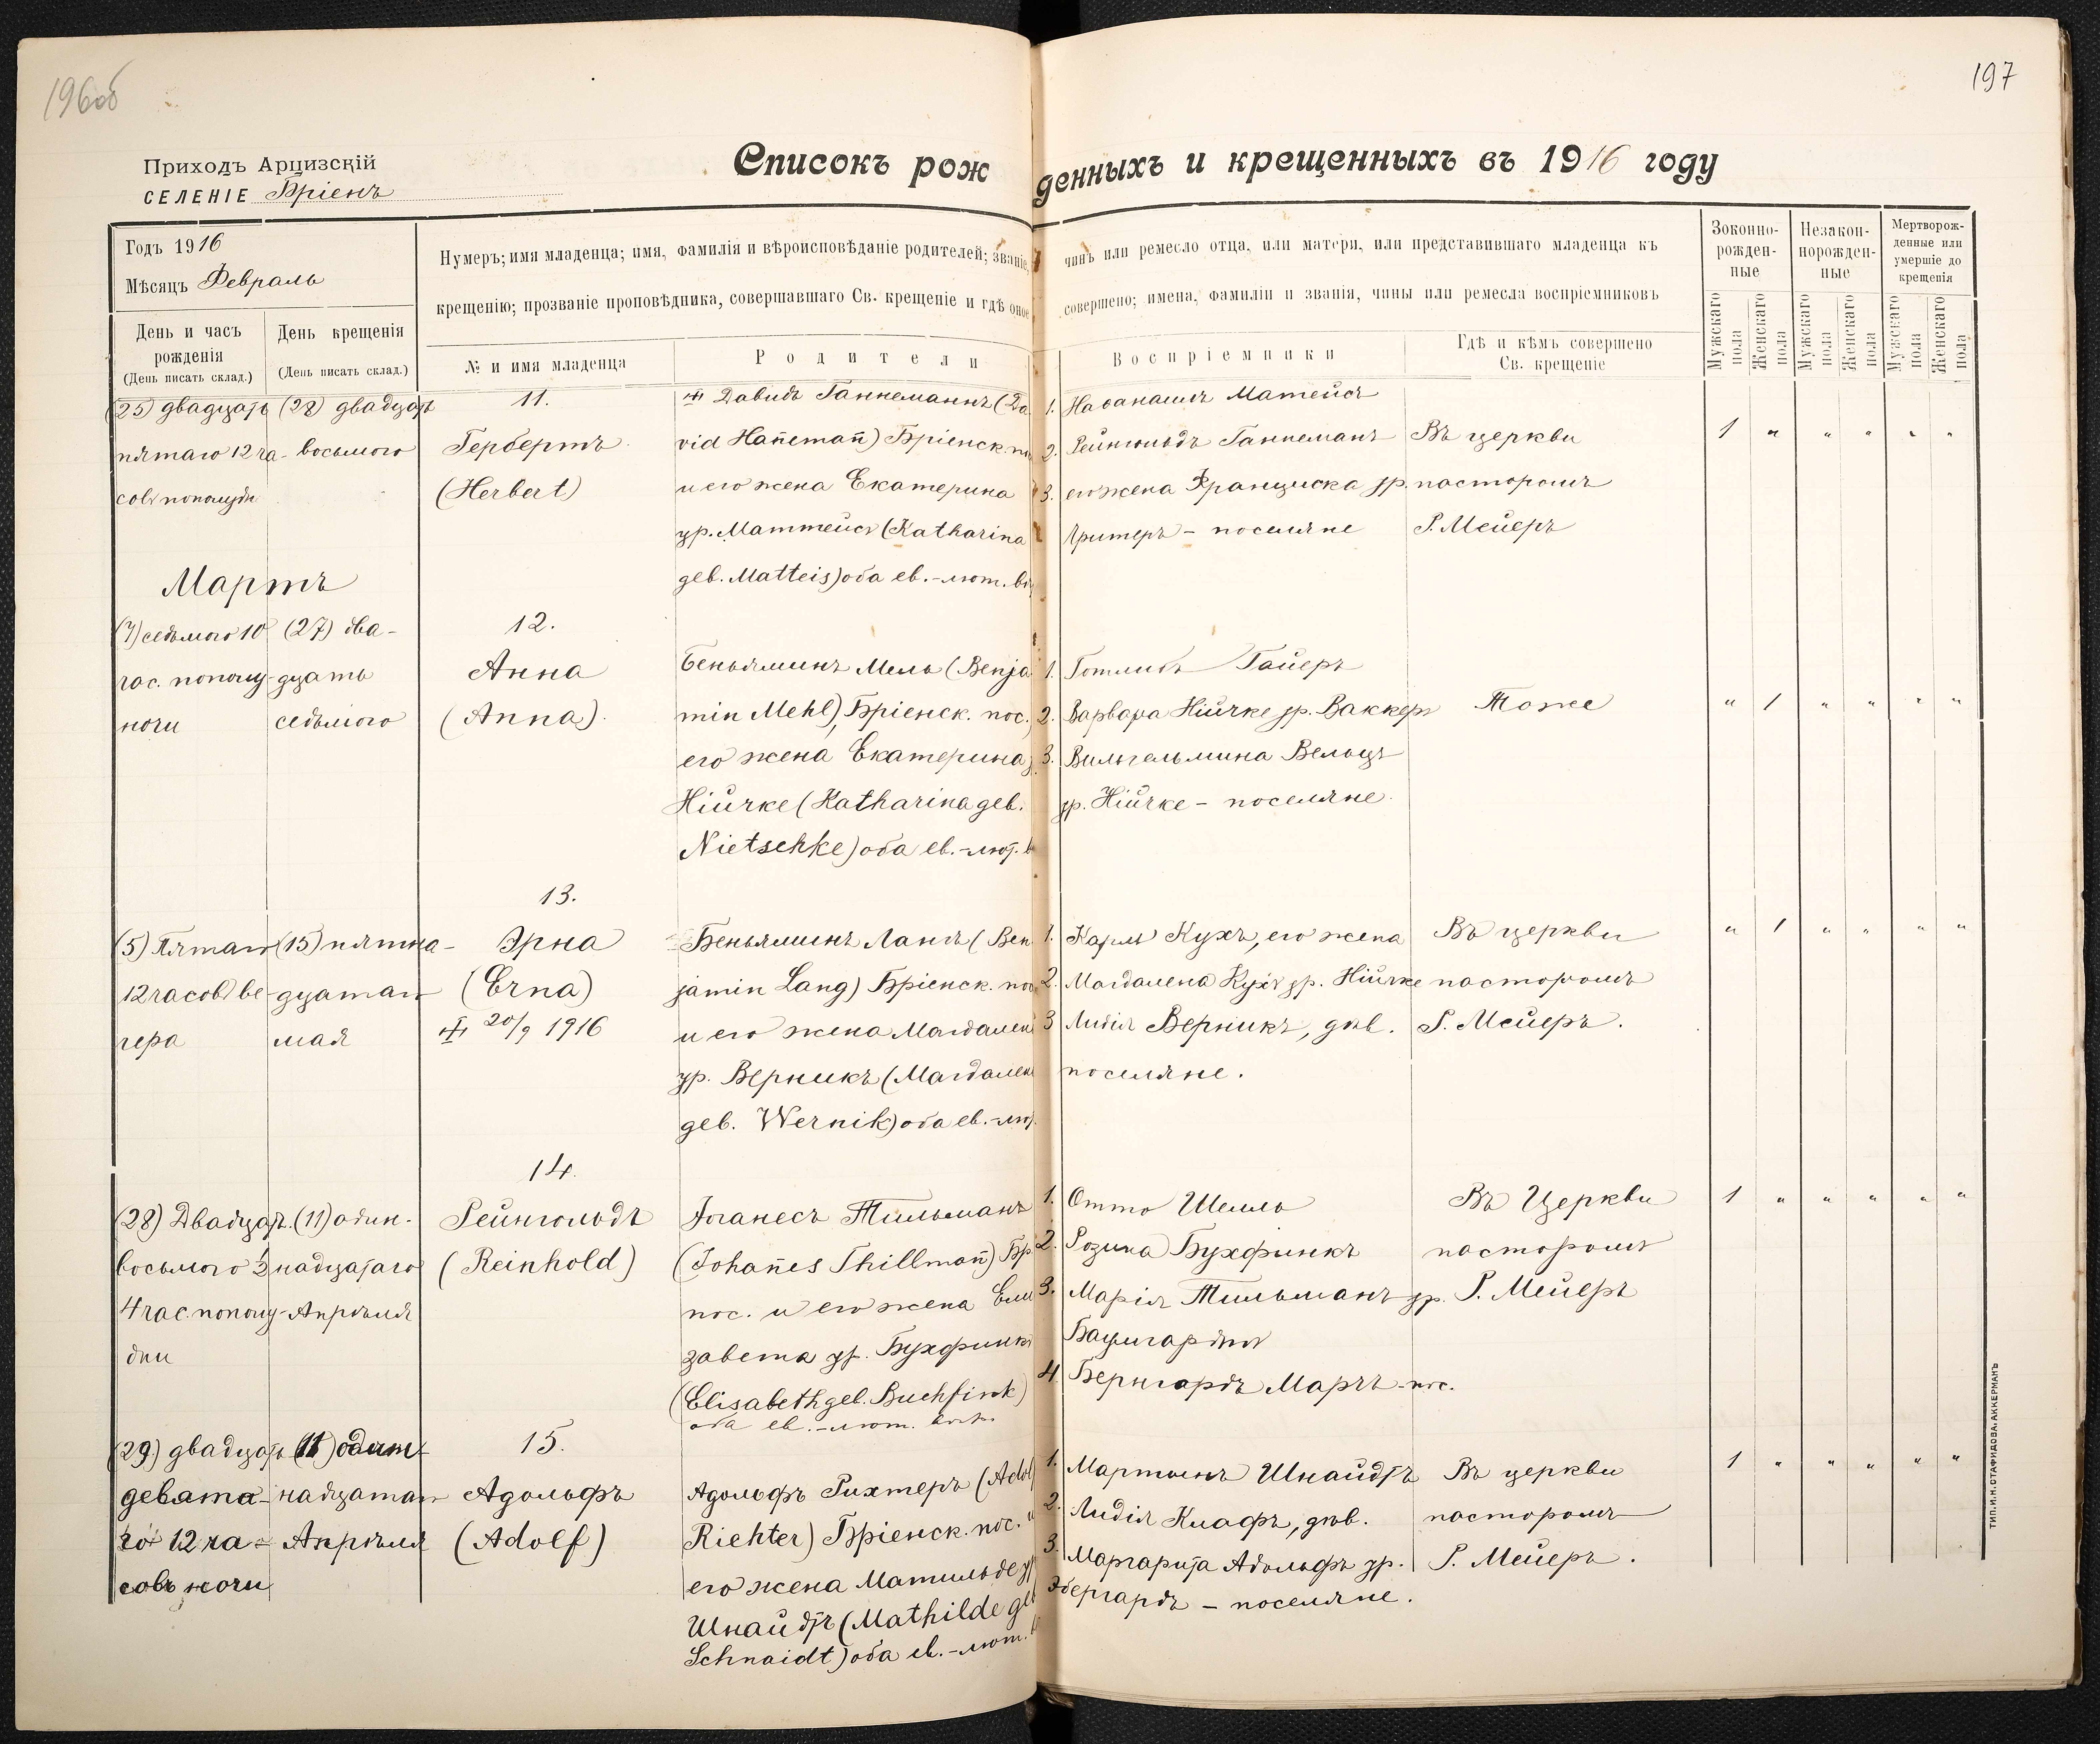 196об
197
Приходъ Арцизскій
СЕЛЕНІЕ Бріенъ
Списокъ рожденныхъ и крещенныхъ въ 1916 году
Годъ 1916
Мѣсяцъ Февраль
День и часъ рожденія
(День писать склад.)
День крещенія
(День писать склад.)
Нумеръ; имя младенца; имя, фамилія и вѣроисповѣданіе родителей; званіе, чинъ или ремесло отца, или матери, или представившаго младенца къ
крещенію; прозваніе проповѣдника, совершавшаго Св. крещеніе и гдѣ оное совершено; имена, фамиліи и званія, чины или ремесла воспріемниковъ
№ и имя младенца
Родители
Воспріемники
Гдѣ и кѣмъ совершено
Св. крещеніе
Зоконно-
рожден-
ные
Незакон-
норожден-
ные
Мертворож-
денные или
умершіе до
крещенія
Мужскаго пола
Женскаго пола
Мужскаго пола
Женскаго пола
Мужскаго пола
Женскаго пола
(25) двадцать
пятаго 12 ча-
совъ пополудн
(28) двадцать
восьмого
11.
Гербертъ
(Herbert)
Давидъ Ганнеманнъ (Da
vid Hañemañ) Бріенск. по
и его жена Екатерина
ур. Маттейсъ (Katharina
геб. Matteis) оба ев.-лют. вѣ
1. Наѳанаилъ Матейсъ
2. Рейнгольдъ Ганнеманъ
3. его жена Франциска ур.
Гритеръ - поселяне
Въ церкви
пасторомъ
Р. Мейеръ
1 " " " " "
Мартъ
(7) седьмого 10
час. пополу-
ночи
(27) два-
дцать
седьмого
12.
Анна
(Anna).
Беньяминъ Мель (Benja
min Mehl), Бріенск. пос.
его жена Екатерина
Нійчке (Katharina geb.
Nietschke) оба ев.-лют. в
1. Готлибъ Гайеръ
2. Варвара Нійчке ур. Ваккеръ
3. Вильгельмина Вельцъ
ур. Нійчке - поселяне.
Тоже
" 1 " " " "
(5) Пятаго
12 часовъ ве-
чера
(15) пятна-
дцатаго
мая
13.
Эрна
(Erna)
20/9 1916
Беньяминъ Лангъ (Ben
jamin Lang) Бріенск. пос
и его жена Магдален
ур. Верникъ (Магдален
геб. Wernik) оба ев.-лют.
1. Карлъ Кухъ, его жена
2. Магдалена Кухъ ур. Нійчке
3 Лидія Верникъ, дѣв.
поселяне.
Въ церкви
пасторомъ
Р. Мейеръ.
" 1 " " " "
(28) Двадцат.
восьмого ½
4 час. пополу-
дни
(11) один-
надцатаго
Апрѣля
14.
Рейнгольдъ
(Reinhold)
Іоганесъ Тильманъ
(Johañes Thillmañ) Бр
пос. и его жена Ели
завета ур. Бухфинкъ
(Elisabeth geb. Buchfink)
оба ев.-лют. вѣр.
1. Отто Шелль
2. Розина Бухфинкъ
3. Марія Тильманъ ур.
Баумгартъ
4. Бернгардъ Марчъ - пос.
Въ Церкви
пасторомъ
Р. Мейеръ
1 " " " " "
(29) двадцать
девята-
го 12 ча-
совъ ночи
(11) один-
надцатаго
Апрѣля
15.
Адольфъ
(Adolf)
Адольфъ Рихтеръ (Adol
Richter) Бріенск. пос. и
его жена Матильде ур
Шнайдтъ (Mathilde geb
Schnaidt) оба ев.-лют. в
1. Мартынъ Шнайдтъ
2. Лидія Клафъ, дѣв.
3. Маргарита Адольфъ ур.
Эбергардъ - поселяне.
Въ церкви
пасторомъ
Р. Мейеръ.
1 " " " " "
ТИП. И. Н. СТАФИДОВА. АККЕРМАНЪ